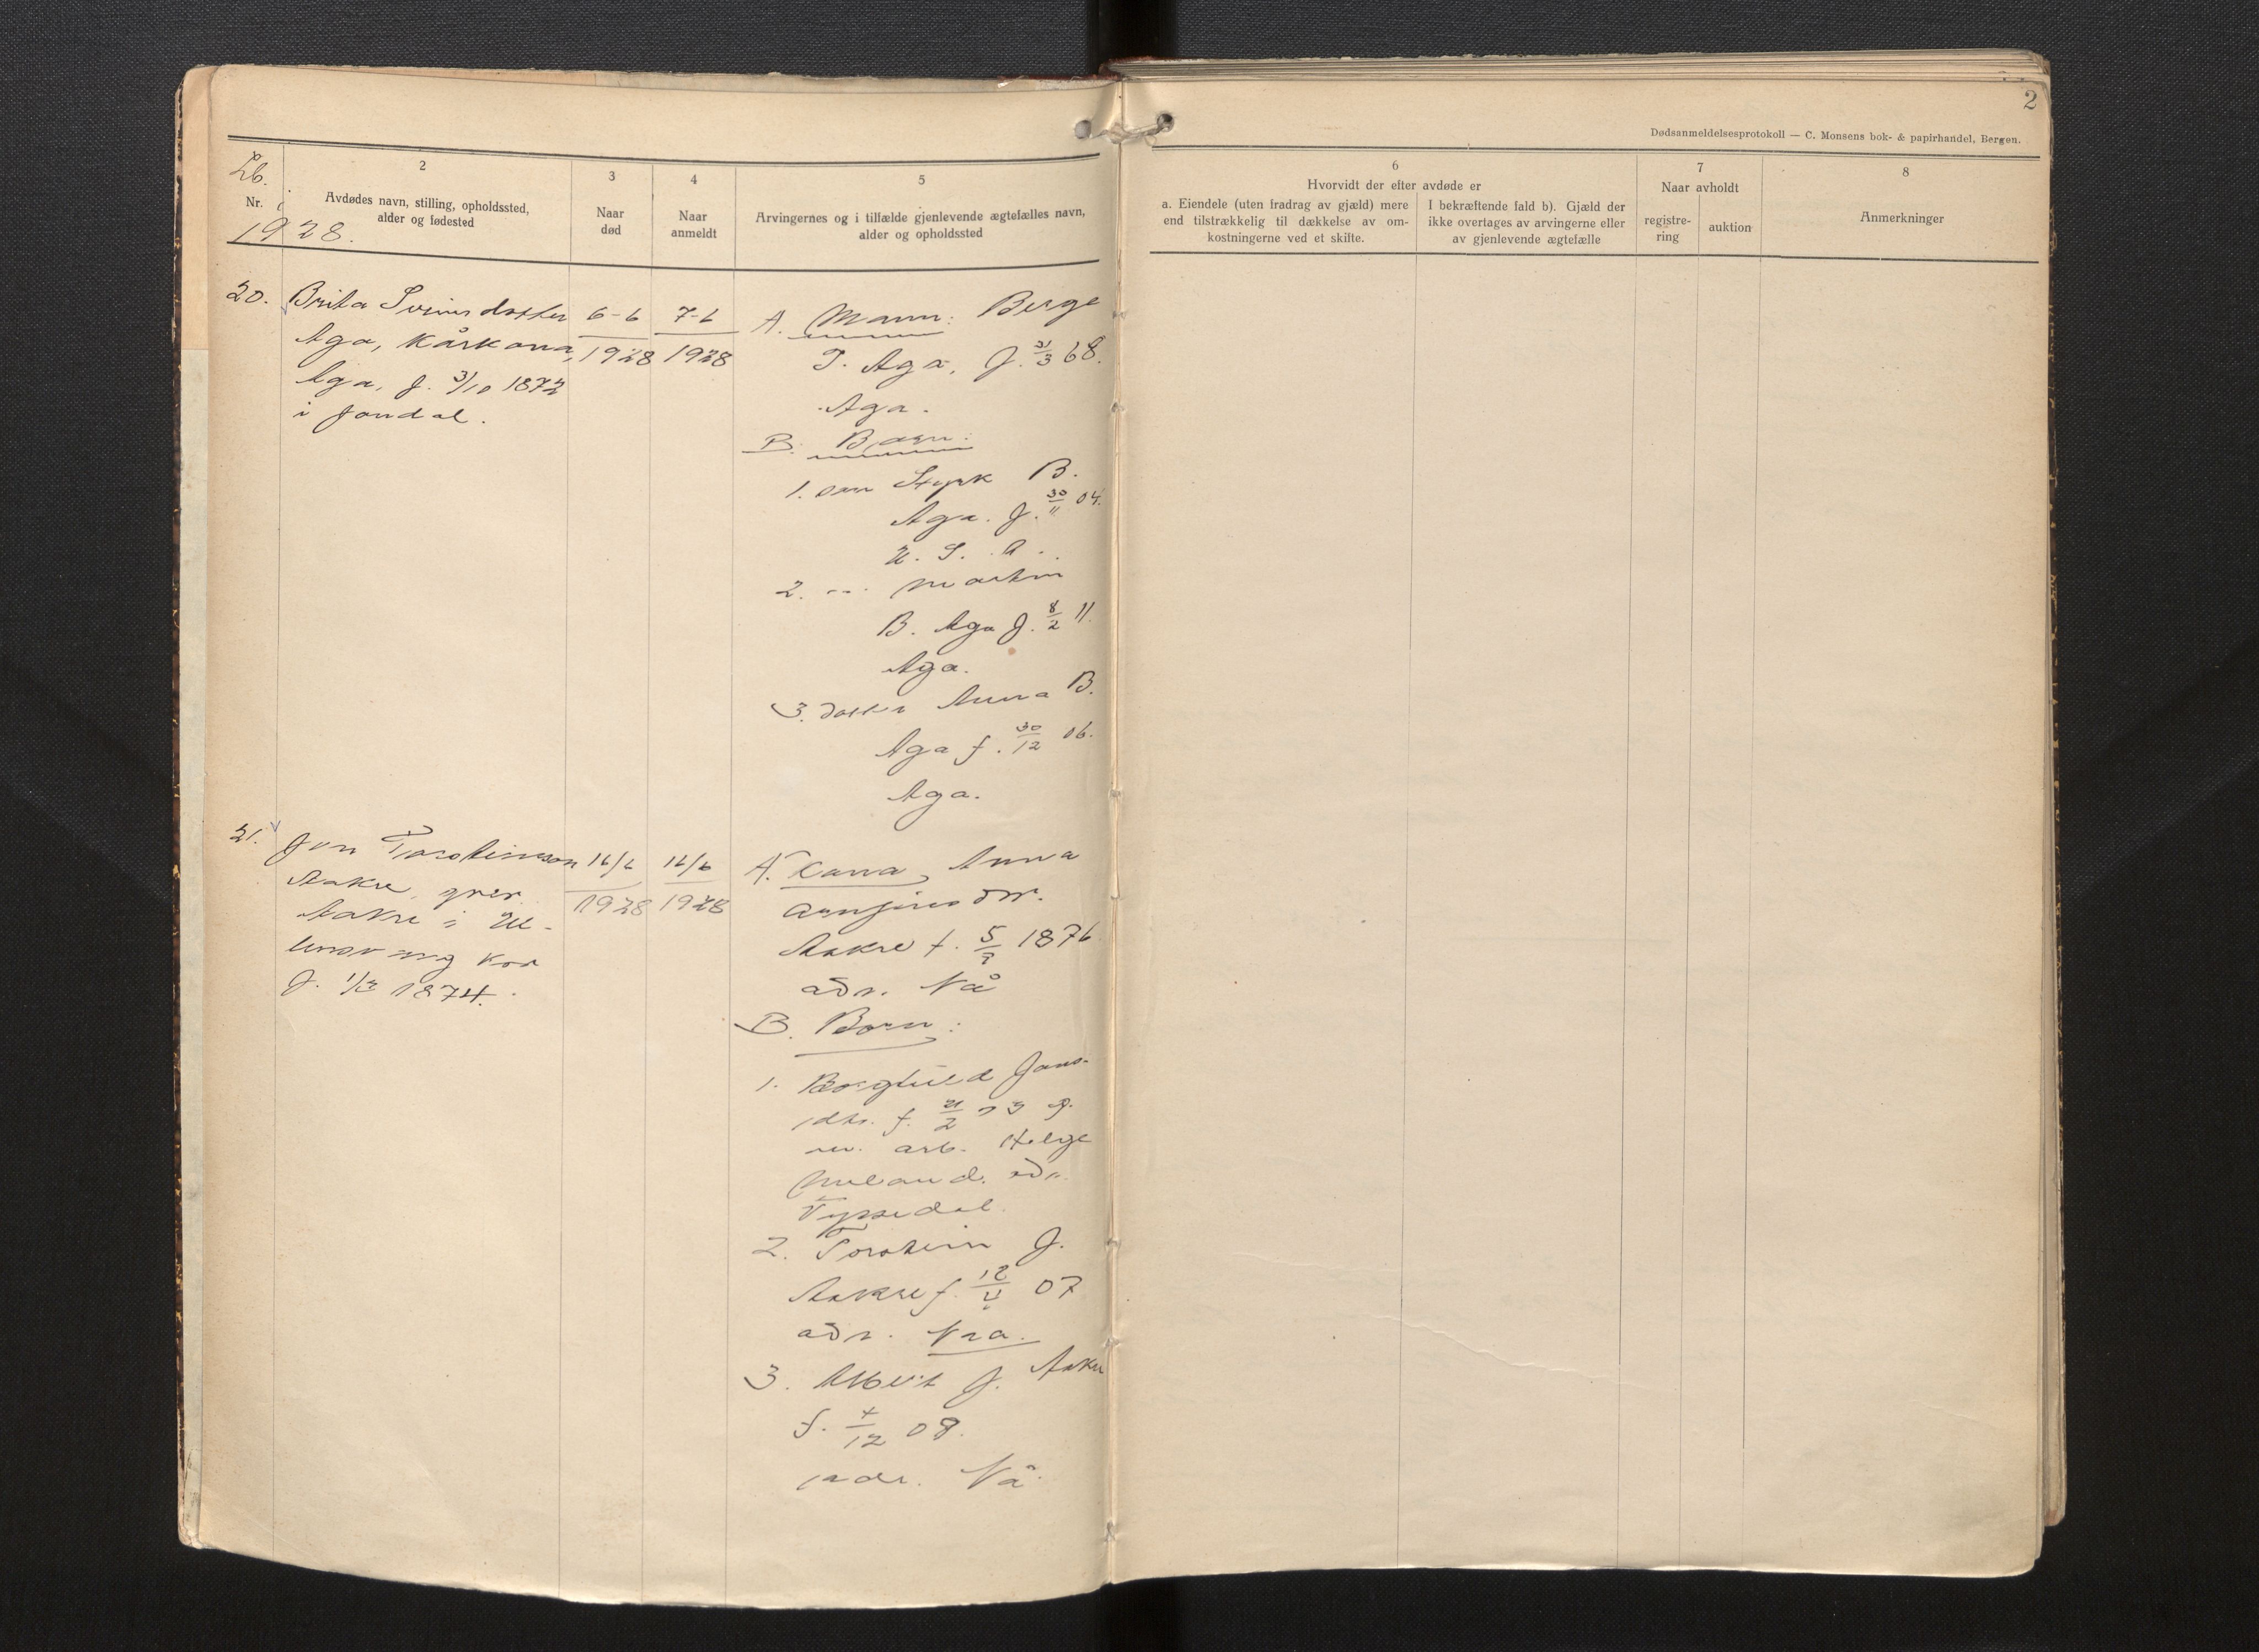 2
Dødsanmeldelsesprotokoll — C. Monsens bok- & papirhandel, Bergen.
Lb.
Nr. i
1928.
2
Avdødes navn, stilling, opholdssted,
alder og fødested
3
Naar
død
4
Naar
anmeldt
5
Arvingernes og i tilfælde gjenlevende ægtefælles navn,
alder og opholdssted
6
Hvorvidt der efter avdøde er
a. Eiendele (uten fradrag av gjæld) mere
end tilstrækkelig til dækkelse av om-
kostningerne ved et skifte.
I bekræftende fald b). Gjæld der
ikke overtages av arvingerne eller
av gjenlevende ægtefælle
7
Naar avholdt
registre-
ring
auktion
8
Anmerkninger
20.
Brita Sveinsdotter
Aga, Kårkona,
Aga, f. 3/10 1872
i Jondal.
6-6
1928
7-6
1928
A. Mann: Berge
T. Aga, f. 31/3 68.
Aga.
B. Born:
1. son Styrk B.
Aga. f. 30/11 04.
U. S. A.
2. --- Martin
B. Aga f. 8/2 11.
Aga.
3. dotter Anna B.
Aga f. 30/12 06.
Aga.
21.
Jon Torsteinson
Aakre,
Aakre i Ul-
lensvang
f. 1/3 1874.
16/6
1928
16/6
1928
A. Kona, Anna
Arnfinsdtr.
Aakre f. 5/7 1876
adr. Nå
B. Born:
1. Borghild Jons-
dtr. f. 21/2 03 g.
m. arb. Helge
Mæland. adr.
Tyssedal.
2. Torstein J.
Aakre f. 12/11 07
adr. Naa.
3. Albert J. Aakre
f. 4/12 08.
adr. Nå.